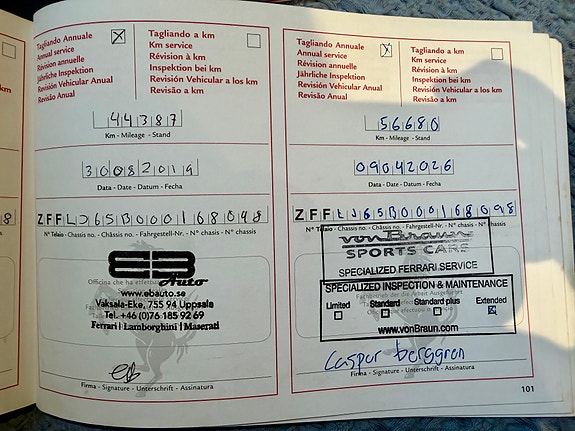 Tagliando Annuale
Annual service
Révision annuelle
Jährliche Inspektion
Revisión Vehicular Anual
Revisão Anual
Tagliando a km
Km service
Révision à km
Inspektion bei km
Revisión Vehicular a los km
Revisão a km
44387
Km - Mileage - Stand
30082019
Data - Date - Datum - Fecha
ZFFLJ65B000168098
N° Telaio - Chassis no. - Châssis no. - Fahrgestell-Nr. - N° chasis - N° chassis
Officina che ha
EB
Auto
www.ebauto.se
Vaksala-Eke, 755 94 Uppsala
Tel. +46 (0)76 185 92 69
Ferrari | Lamborghini | Maserati
Firma - Signature - Unterschrift - Assinatura
Tagliando Annuale
Annual service
Révision annuelle
Jährliche Inspektion
Revisión Vehicular Anual
Revisão Anual
Tagliando a km
Km service
Révision à km
Inspektion bei km
Revisión Vehicular a los km
Revisão a km
56680
Km - Mileage - Stand
09042026
Data - Date - Datum - Fecha
ZFFLJ65B000168098
N° Telaio - Chassis no. - Châssis no. - Fahrgestell-Nr. - N° chasis - N° chassis
von Braun
SPORTS CARS
SPECIALIZED FERRARI SERVICE
SPECIALIZED INSPECTION & MAINTENANCE
Limited Standard Standard plus Extended
www.vonBraun.com
Casper berggren
Firma - Signature - Unterschrift - Assinatura
101